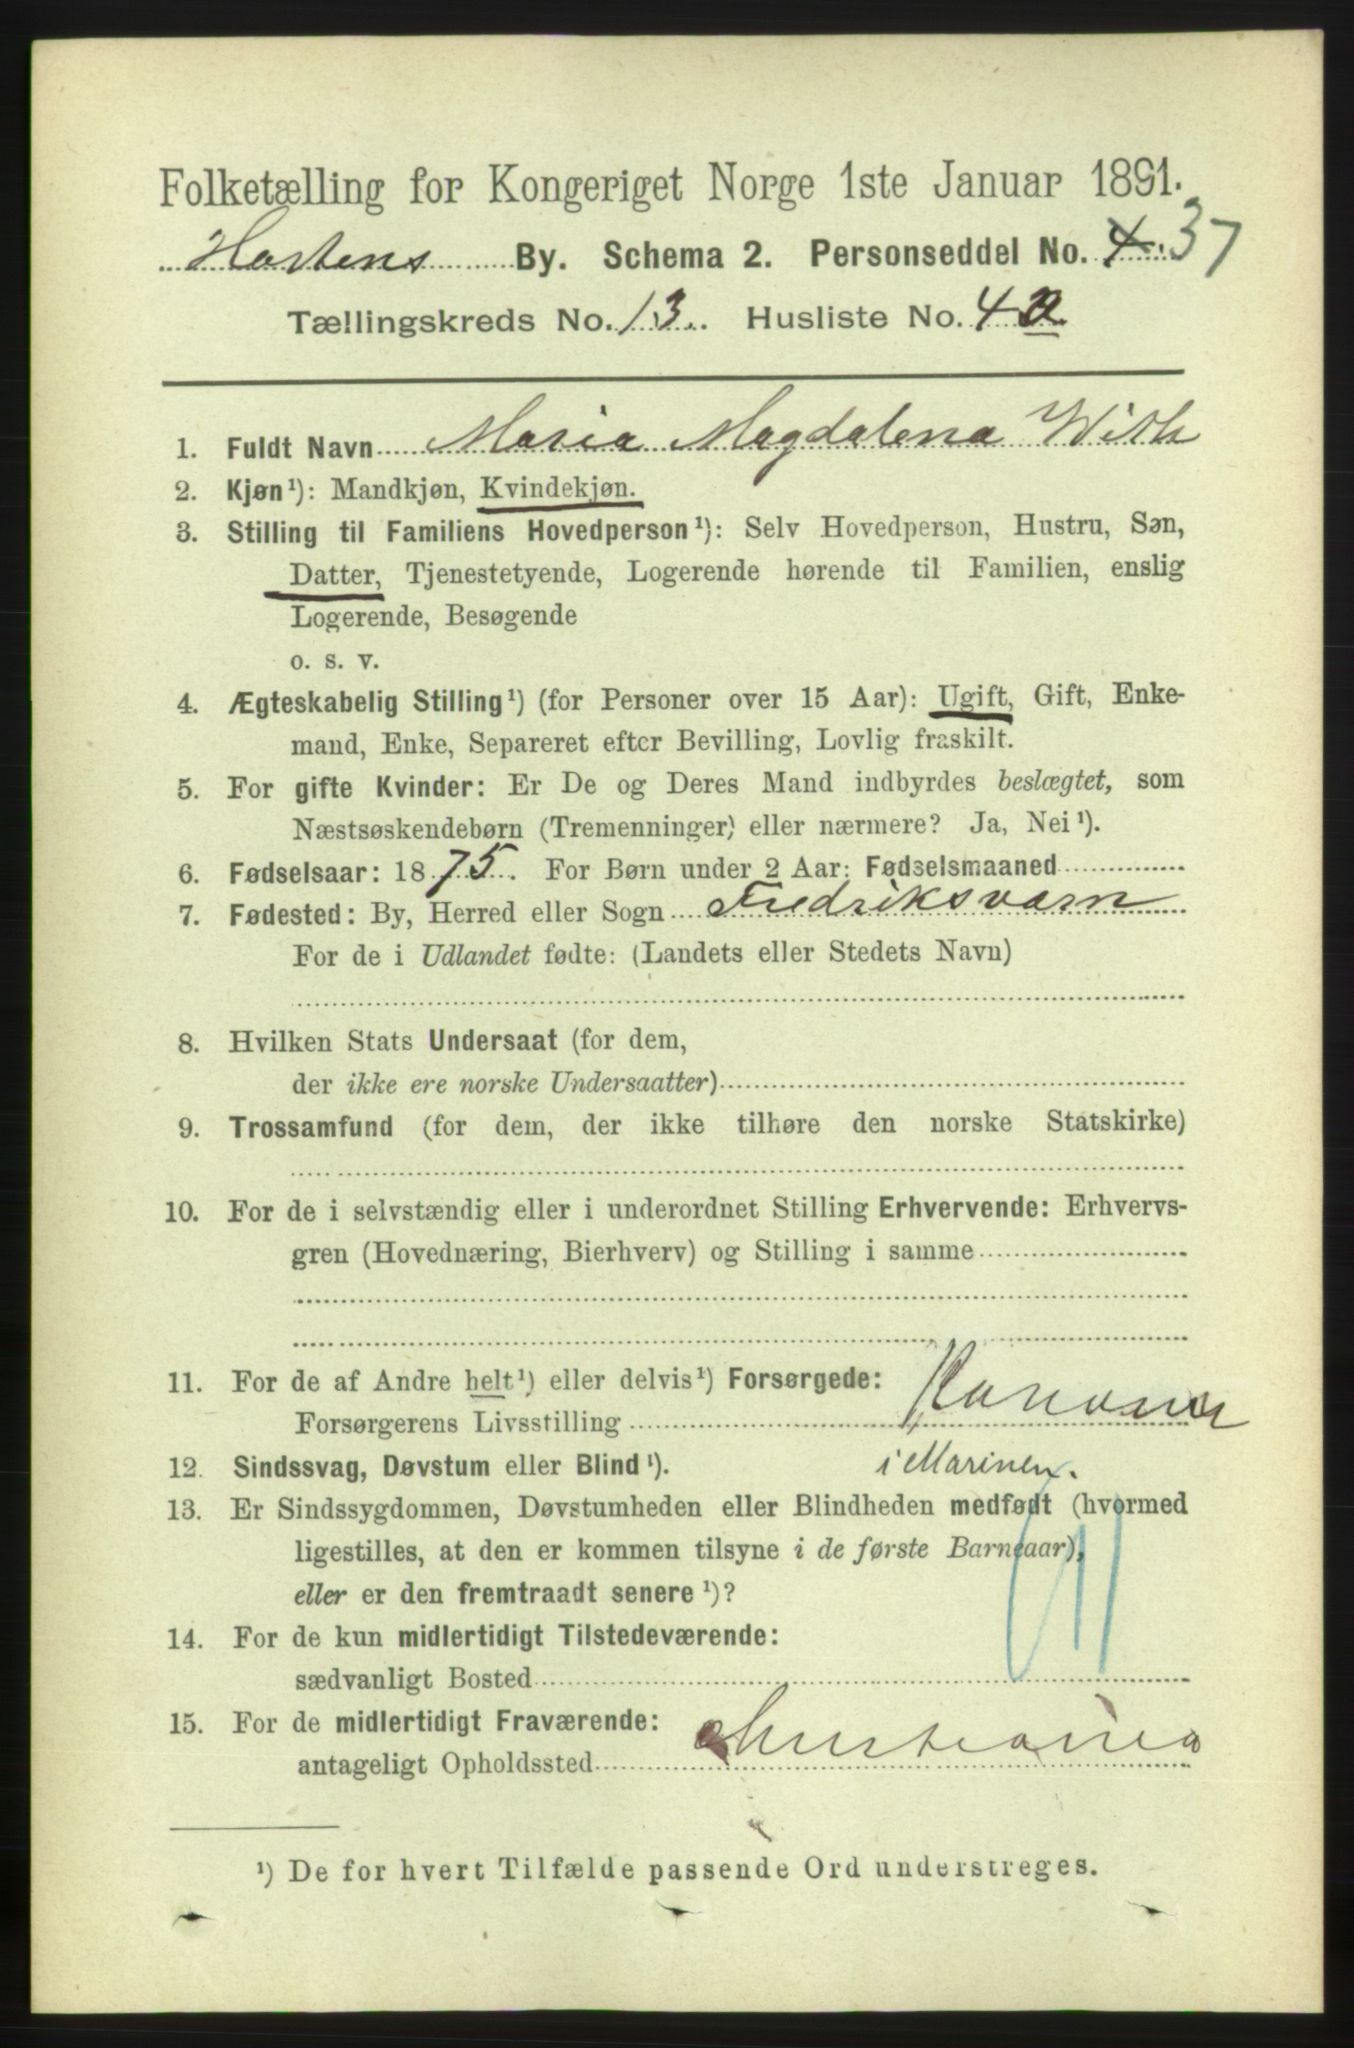 Folketælling for Kongeriget Norge 1ste Januar 1891.
Hortens By. Schema 2. Personseddel No. 4. 37
Tællingskreds No. 13. Husliste No. 42
1. Fuldt Navn Maria Magdalena With
2. Kjøn¹): Mandkjøn, Kvindekjøn.
3. Stilling til Familiens Hovedperson¹): Selv Hovedperson, Hustru, Søn,
Datter, Tjenestetyende, Logerende hørende til Familien, enslig
Logerende, Besøgende
o. s. v.
4. Ægteskabelig Stilling¹) (for Personer over 15 Aar): Ugift, Gift, Enke-
mand, Enke, Separeret efter Bevilling, Lovlig fraskilt.
5. For gifte Kvinder: Er De og Deres Mand indbyrdes beslægtet, som
Næstsøskendebørn (Tremenninger) eller nærmere? Ja, Nei¹).
6. Fødselsaar: 1875. For Børn under 2 Aar: Fødselsmaaned
7. Fødested: By, Herred eller Sogn Fredriksværn
For de i Udlandet fødte: (Landets eller Stedets Navn)
8. Hvilken Stats Undersaat (for dem,
der ikke ere norske Undersaatter)
9. Trossamfund (for dem, der ikke tilhøre den norske Statskirke)
10. For de i selvstændig eller i underordnet Stilling Erhvervende: Erhvervs-
gren (Hovednæring, Bierhverv) og Stilling i samme
11. For de af Andre helt¹) eller delvis¹) Forsørgede:
Forsørgerens Livsstilling
i Marinen.
12. Sindssvag, Døvstum eller Blind¹).
13. Er Sindssygdommen, Døvstumheden eller Blindheden medfødt (hvormed
ligestilles, at den er kommen tilsyne i de første Barneaar),
eller er den fremtraadt senere¹)?
14. For de kun midlertidigt Tilstedeværende:
sædvanligt Bosted
15. For de midlertidigt Fraværende:
antageligt Opholdssted Christiania
¹) De for hvert Tilfælde passende Ord understreges.